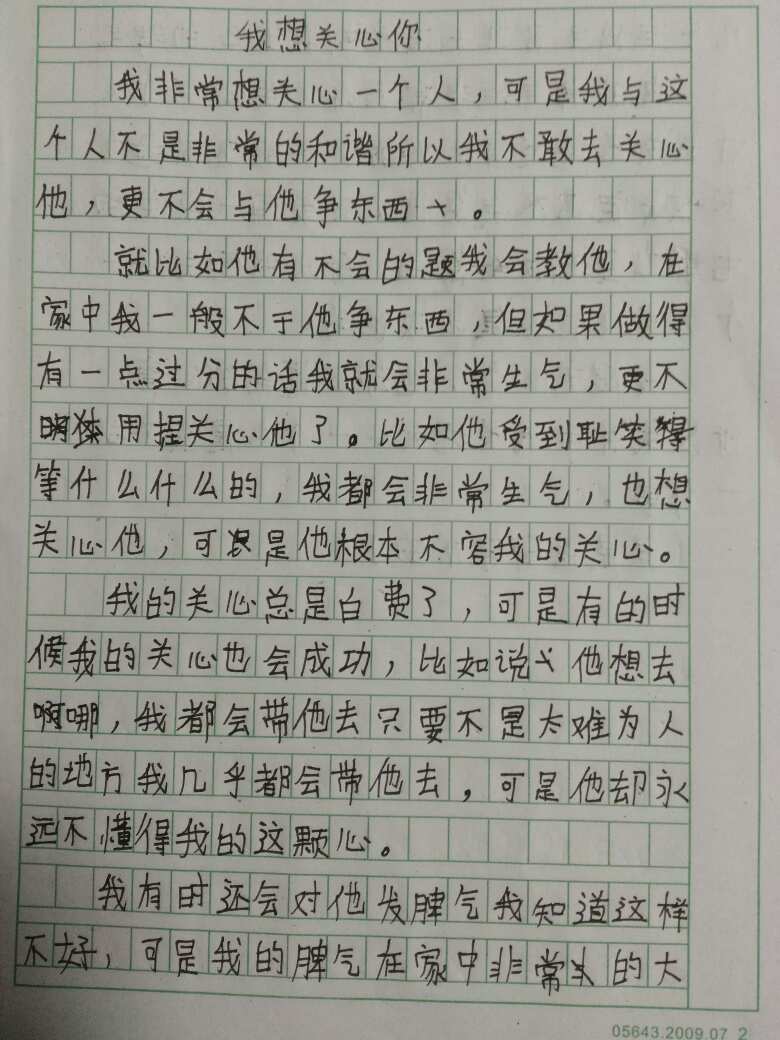 我想关心你
我非常想关心一个人，可是我与这
个人不是非常的和谐所以我不敢去关心
他，更不会与他争东西。
就比如他有不会的题我会教他，在
家中我一般不于他争东西，但如果做得
有一点过分的话我就会非常生气，更不
用提关心他了。比如他受到耻笑
等什么什么的，我都会非常生气，也想
关心他，可是他根本不容我的关心。
我的关心总是白费了，可是有的时
候我的关心也会成功，比如说他想去
哪，我都会带他去只要不是太难为人
的地方我几乎都会带他去，可是他却永
远不懂得我的这颗心。
我有时还会对他发脾气我知道这样
不好，可是我的脾气在家中非常的大
05643.2009.07 2